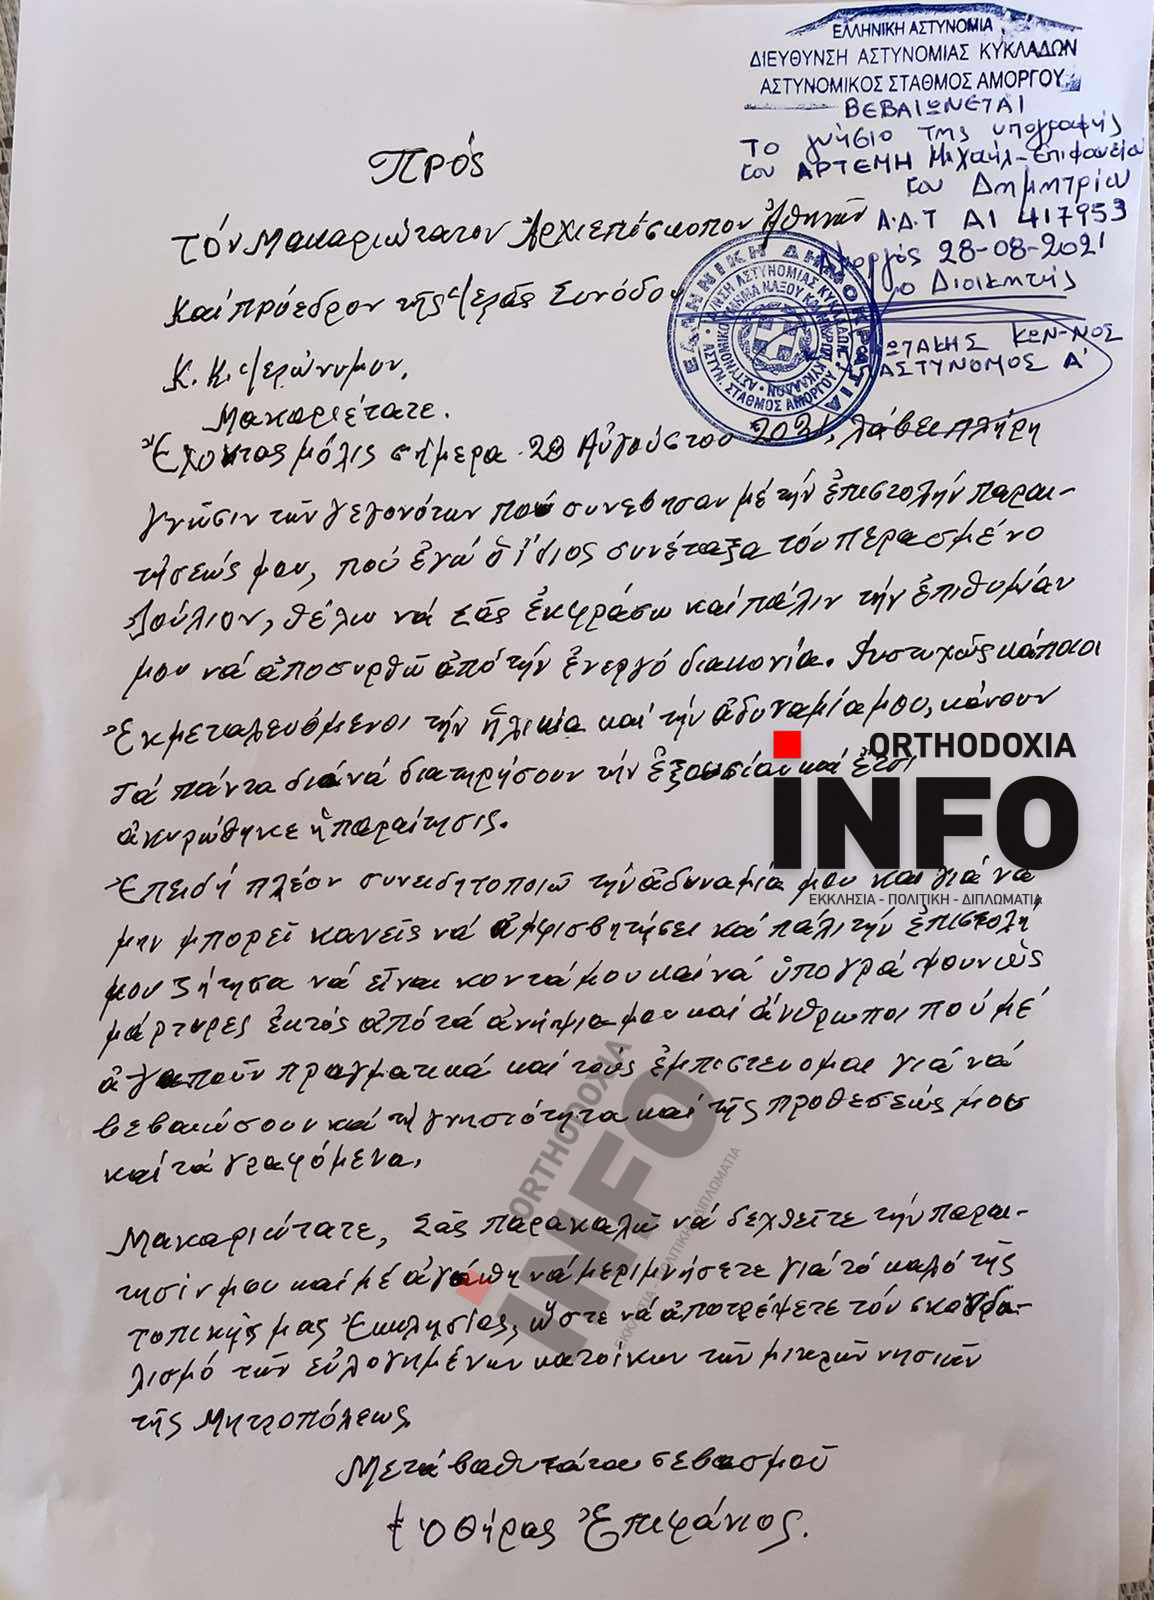 ΕΛΛΗΝΙΚΗ ΑΣΤΥΝΟΜΙΑ
ΔΙΕΥΘΥΝΣΗ ΑΣΤΥΝΟΜΙΑΣ ΚΥΚΛΑΔΩΝ
ΑΣΤΥΝΟΜΙΚΟΣ ΣΤΑΘΜΟΣ ΑΜΟΡΓΟΥ
ΒΕΒΑΙΩΝΕΤΑΙ
Το γνήσιο της υπογραφής
του ΑΡΤΕΜΗ Μιχαήλ-Επιφανείου
του Δημητρίου
Α.Δ.Τ ΑΙ 417953
Αμοργός 28-08-2021
ο Διοικητής
ΚΩΝ-ΝΟΣ
ΑΣΤΥΝΟΜΟΣ Α'
ΕΛΛΗΝΙΚΗ ΔΗΜΟΚΡΑΤΙΑ
ΣΤΑΘΜΟΣ ΑΜΟΡΓΟΥ
Πρός
τόν Μακαριώτατον Ἀρχιεπίσκοπον Ἀθηνῶν
Καί πρόεδρον τῆς Ἱερᾶς Συνόδου
Κ. Κ. Ἱερώνυμον.
Μακαριέτατε.
Ἔχοντας μόλις σήμερα 28 Αὐγούστου 2021, λάβει πλήρη
γνῶσιν τῶν γεγονότων πού συνεβησαν μέ τήν ἐπιστολήν παραι-
τήσεώς μου, πού ἐγώ ὁ ἴδιος συνέταξα τόν περασμένο
Ἰούλιον, θέλω νά Σᾶς ἐκφράσω καί πάλιν τήν ἐπιθυμίαν
μου νά ἀποσυρθῶ ἀπό τήν ἐνεργό διακονία. Δυστυχῶς κάποιοι
Ἐκμεταλευόμενοι τήν ἡλικία καί τήν ἀδυναμία μου, κάνουν
Τά πάντα διά νά διατηρήσουν τήν ἐξουσίαν καί ἔτσι
ἀκυρώθηκε ἡ παραίτησις.
Ἐπειδή πλέον συνειδητοποιῶ τήν ἀδυναμία μου και γιά νά
μην μπορεῖ κανεῖς νά ἀμφισβητήσει κά πάλι τήν ἐπιστολή
μου ζήτησα νά εἶναι κοντά μου καί νά ὑπογράψουν ὡς
μάρτυρες ἐκτός ἀπό τά ἀνήψια μου καί ἄνθρωποι πού μέ
ἀγαποῦν πραγματικά καί τούς ἐμπιστευομαι γιά νά
βεβαιώσουν κά τή γνησιότητα καί τῆς προθεσεώς μου
καί τά γραφόμενα.
Μακαριώτατε, Σᾶς παρακαλῶ νά δεχθεῖτε τήν παραι-
τησίν μου καί μέ ἀγάπη νά μεριμνήσετε γιά τό καλό τῆς
τοπικῆς μας Ἐκκλησίας, ὥστε νά ἀποτρέψετε τόν σκανδα-
λισμό τῶν εὐλογημένων κατοίκων τῶν μικρῶν νησιῶν
τῆς Μητροπόλεως
Μετά βαθυτάτου σεβασμοῦ
† Ὁ Θήρας Ἐπιφάνιος.
ORTHODOXIA
INFO
ΕΚΚΛΗΣΙΑ - ΠΟΛΙΤΙΚΗ - ΔΙΠΛΩΜΑΤΙΑ
ORTHODOXIA
INFO
ΕΚΚΛΗΣΙΑ ΠΟΛΙΤΙΚΗ ΔΙΠΛΩΜΑΤΙΑ